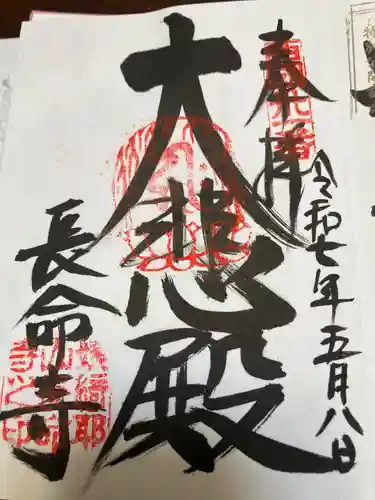 奉拝
令和七年五月八日
大悲殿
長命寺